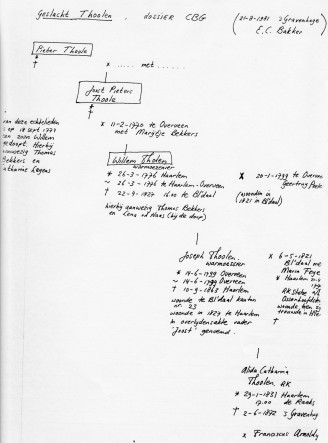 Geslacht Thoolen, dossier CBG
(21-8-1981 s Gravenhage
E.C. Bakker)
Pieter Thoole
†
x ..... met .....
Joost Pieters
Thoole
†
x 11-2-1770 te Overveen
met Marijtje Bekkers
van deze echtelieden
op 18 sept 1777
een zoon Willem
gedoopt. Hierbij
aanwezig Thomas
Bekkers en
Catharina
Willem Tholen
warmoezenier
* 26-3-1776 Haarlem
~ 26-3-1776 te Haarlem-Overveen
† 22-9-1827 16.00 te Bl'daal
hierbij aanwezig Thomas Bekkers
en Lena de Haas (bij de doop)
x 20-1-1799 te Overveen
Geertruy
(woonden in
1821 in Bl'daal)
Joseph Thoolen
warmoezier
* 14-6-1799 Overveen
~ 14-6-1799 Overveen
† 10-9-1863 Haarlem
woonde te Bl'daal kanton
nr. 23
woonde in 1827 te Haarlem
in overlijdensakte vader
"Joost" genoemd.
x 6-5-1821
Bl'daal me
Maria Feye
* Haarlem
†
Alida Catharina
Thoolen RK
* 29-1-1831 Haarlem
17.00 de Raaks
† 2-6-1872 s Gravenhag
x Franciscus Arnoldy